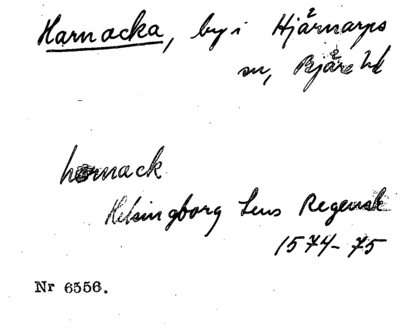 Harnacka, by i Hjärnarps
sn, Bjäre hd
hornack
Helsingborg Lens Regensk
1574-75
Nr 6556.